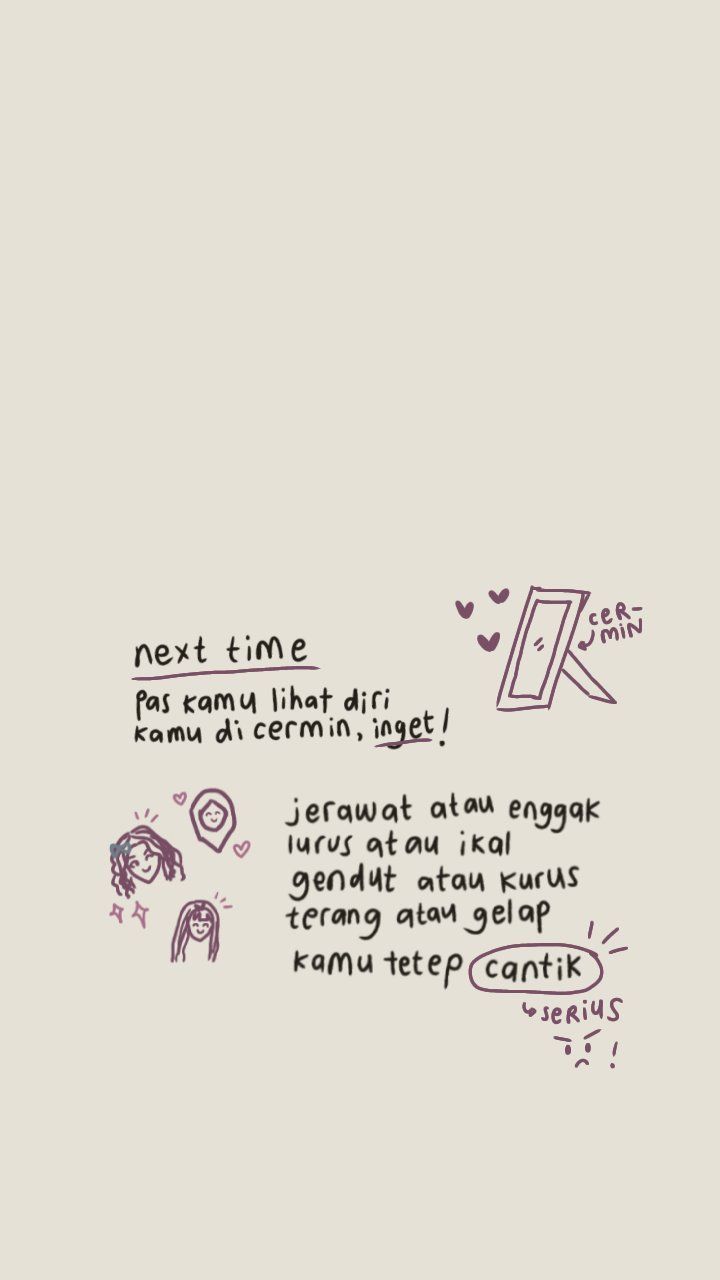 next time
pas kamu lihat diri
kamu di cermin, inget!
cer-
min
jerawat atau enggak
lurus atau ikal
gendut atau kurus
terang atau gelap
kamu tetep cantik
serius
!